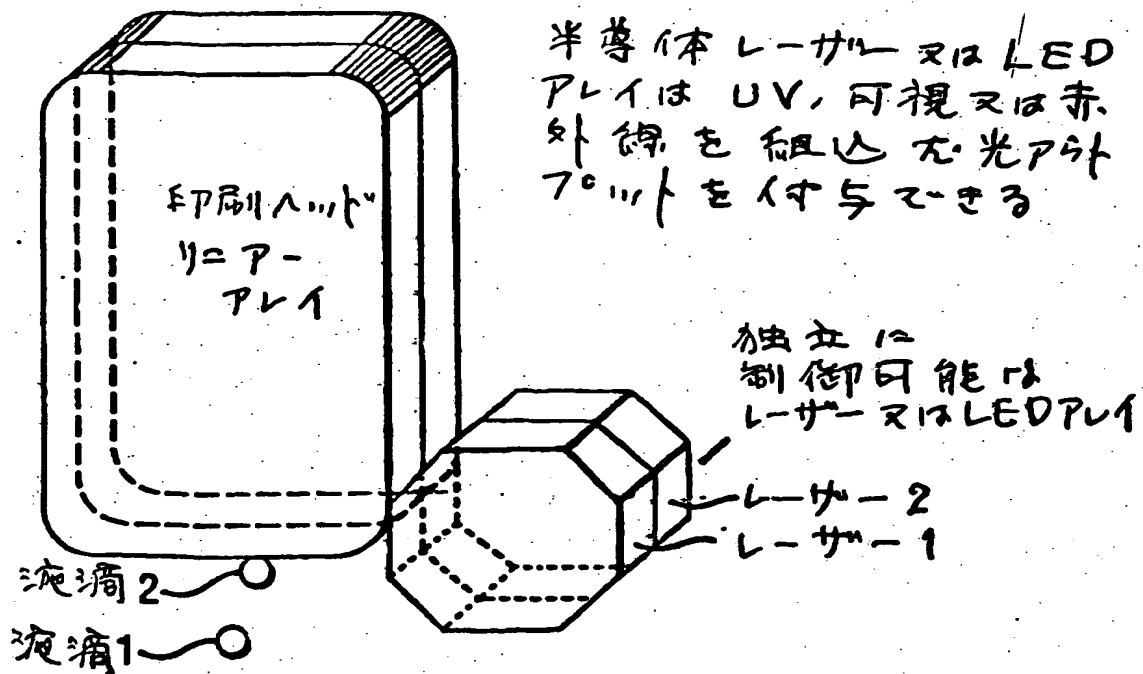 半導体レーザー又はLED
アレイはUV，可視又は赤
外線を組込む光アウト
プットを付与できる
印刷ヘッド
リニアー
アレイ
独立に
制御可能な
レーザー又はLEDアレイ
レーザー2
レーザー1
液滴2
液滴1